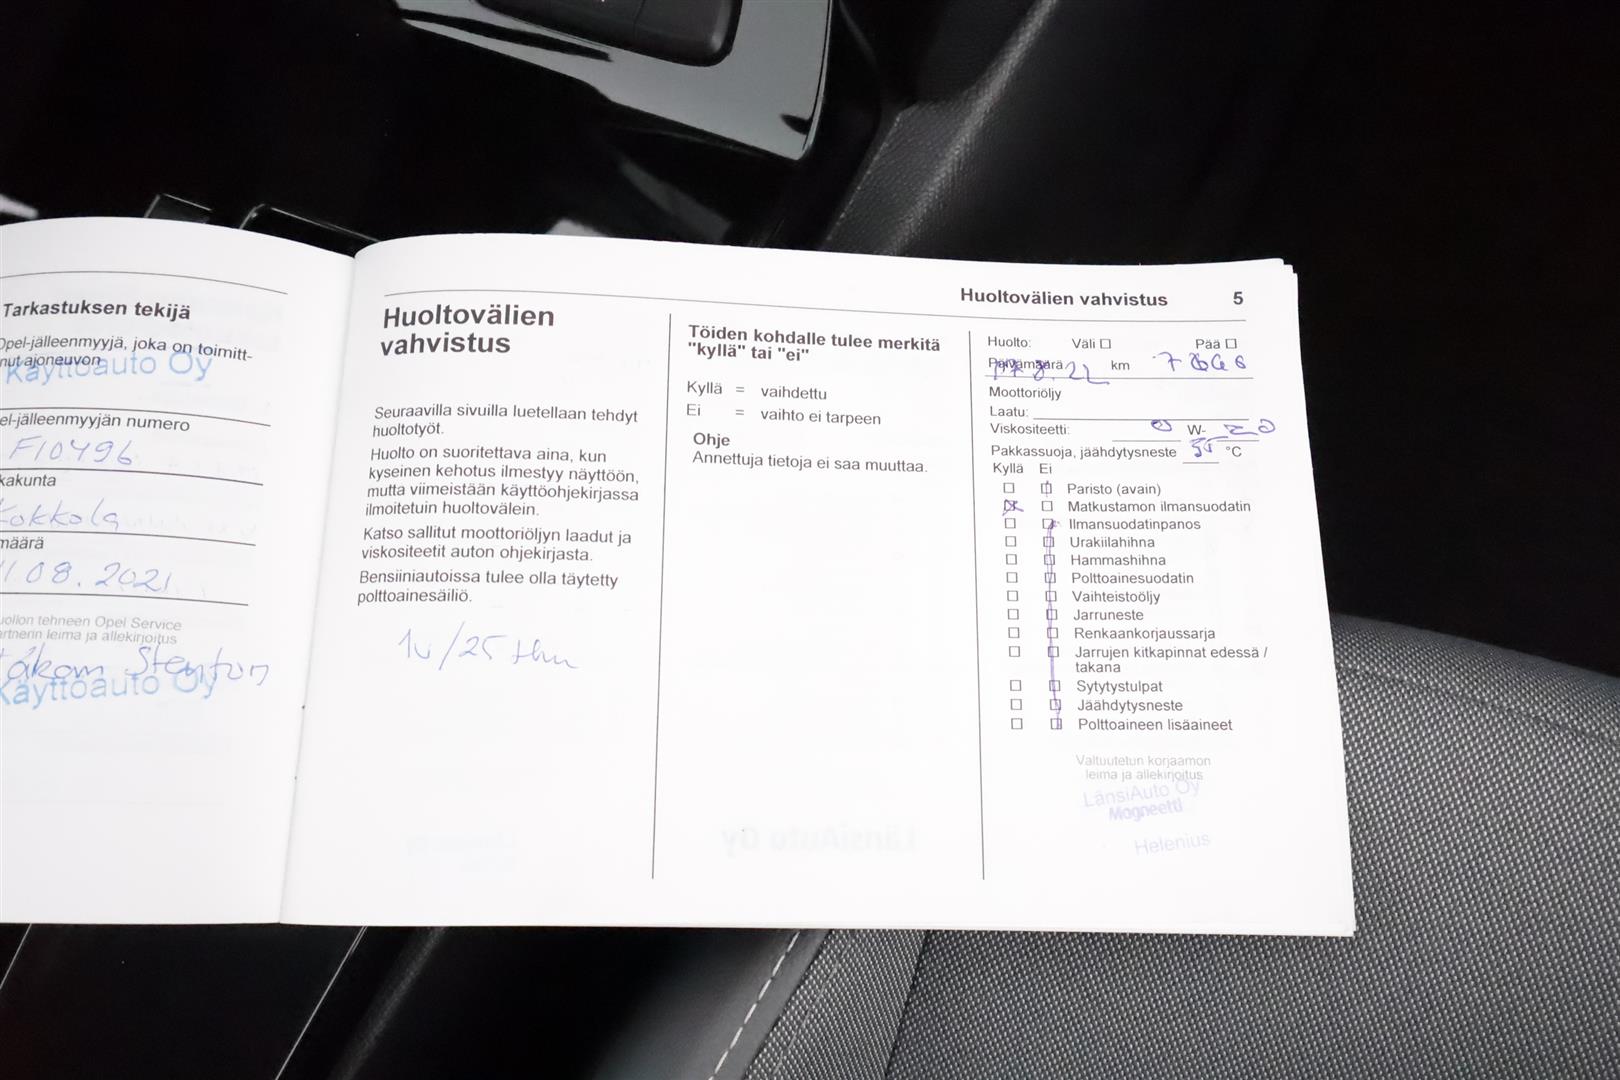 Tarkastuksen tekijä
Opel-jälleenmyyjä, joka on toimitt-
nut ajoneuvon
Käyttöauto Oy
el-jälleenmyyjän numero
F10496
kakunta
Kokkola
määrä
11.08.2021
uollon tehneen Opel Service
artnerin leima ja allekirjoitus
Käyttöauto Oy
Huoltovälien
vahvistus
Seuraavilla sivuilla luetellaan tehdyt
huoltotyöt.
Huolto on suoritettava aina, kun
kyseinen kehotus ilmestyy näyttöön,
mutta viimeistään käyttöohjekirjassa
ilmoitetuin huoltovälein.
Katso sallitut moottoriöljyn laadut ja
viskositeetit auton ohjekirjasta.
Bensiiniautoissa tulee olla täytetty
polttoainesäiliö.
1v/25 tkm
Töiden kohdalle tulee merkitä
"kyllä" tai "ei"
Kyllä = vaihdettu
Ei = vaihto ei tarpeen
Ohje
Annettuja tietoja ei saa muuttaa.
Huoltovälien vahvistus 5
Huolto: Väli ☐ Pää ☐
Päivämäärä km
Moottoriöljy
Laatu:
Viskositeetti: 0 W- 20
Pakkassuoja, jäähdytysneste °C
Kyllä Ei
Paristo (avain)
Matkustamon ilmansuodatin
Ilmansuodatinpanos
Urakiilahihna
Hammashihna
Polttoainesuodatin
Vaihteistoöljy
Jarruneste
Renkaankorjaussarja
Jarrujen kitkapinnat edessä /
takana
Sytytystulpat
Jäähdytysneste
Polttoaineen lisäaineet
Valtuutetun korjaamon
leima ja allekirjoitus
LänsiAuto Oy
Magneetti
Helenius